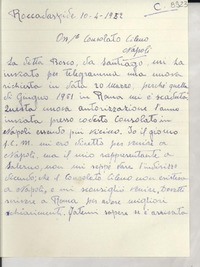 Roccadaspide 10-4-1952
C. 8323
On.le Consolato Cileno
Napoli
La Ditta Bosco, da Santiago mi ha
inviato per telegramma una nuova
richiesta in data 20 marzo, perché quella
di Giugno 1951 in Roma mi è scaduta.
Questa nuova autorizzazione l'anno
inviata presso codesto Consolato in
Napoli essendo più vicino. Io il giorno
c.m. mi ero diretto per venire a
Napoli, ma il mio rappresentante a
Salerno, non mi seppe dare l'indirizzo
dicendo che il Consolato Cileno non esisteva
a Napoli, e mi consigliò
a Roma per avere migliori
chiarimenti, fatemi sapere se è arrivata